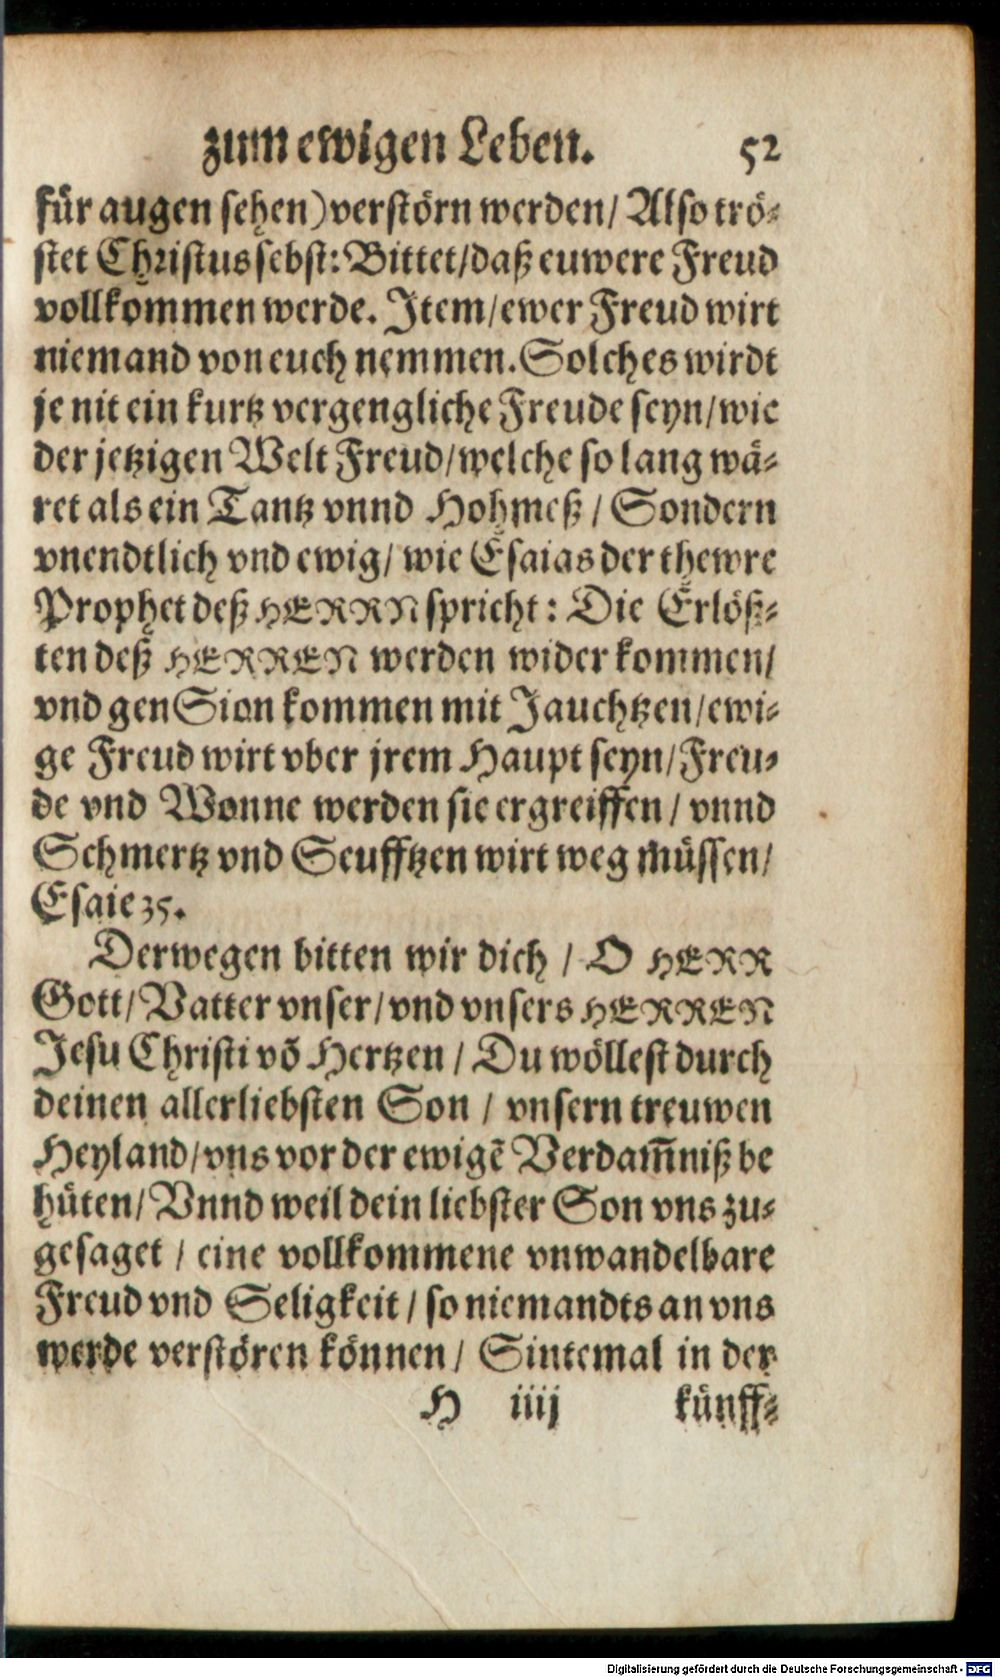 zum ewigen Leben. 52
für augen sehen) verstörn werden/ Also trö-
stet Christus sebst: Bittet/ daß euwere Freud
vollkommen werde. Item/ ewer Freud wirt
niemand von euch nemmen. Solches wirdt
je nit ein kurtz vergengliche Freude seyn/ wie
der jetzigen Welt Freud/ welche so lang wä-
ret als ein Tantz vnnd Hohmeß/ Sondern
vnendtlich vnd ewig/ wie Esaias der thewre
Prophet deß HERRN spricht: Die Erlöß-
ten deß HERREN werden wider kommen/
vnd gen Sion kommen mit Jauchtzen/ ewi-
ge Freud wirt vber jrem Haupt seyn/ Freu-
de vnd Wonne werden sie ergreiffen/ vnnd
Schmertz vnd Seufftzen wirt weg müssen/
Esaie 35.
Derwegen bitten wir dich/ O HERR
Gott/ Vatter vnser/ vnd vnsers HERREN
Jesu Christi võ Hertzen/ Du wöllest durch
deinen allerliebsten Son/ vnsern treuwen
Heyland/ vns vor der ewigẽ Verdam̃niß be
hüten/ Vnnd weil dein liebster Son vns zu-
gesaget/ eine vollkommene vnwandelbare
Freud vnd Seligkeit/ so niemandts an vns
werde verstören können/ Sintemal in der
H iiij künff-
Digitalisierung gefördert durch die Deutsche Forschungsgemeinschaft - DFG